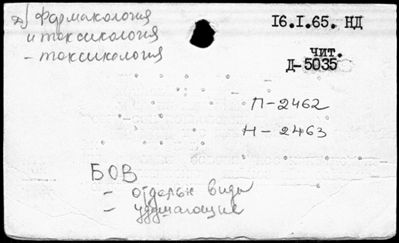 д) фармакология
и токсикология
- токсикология
16.I.65. НД
чит.
Д-5035
П-2462
Н-2463
БОВ
- отдельн виды
- удушающие